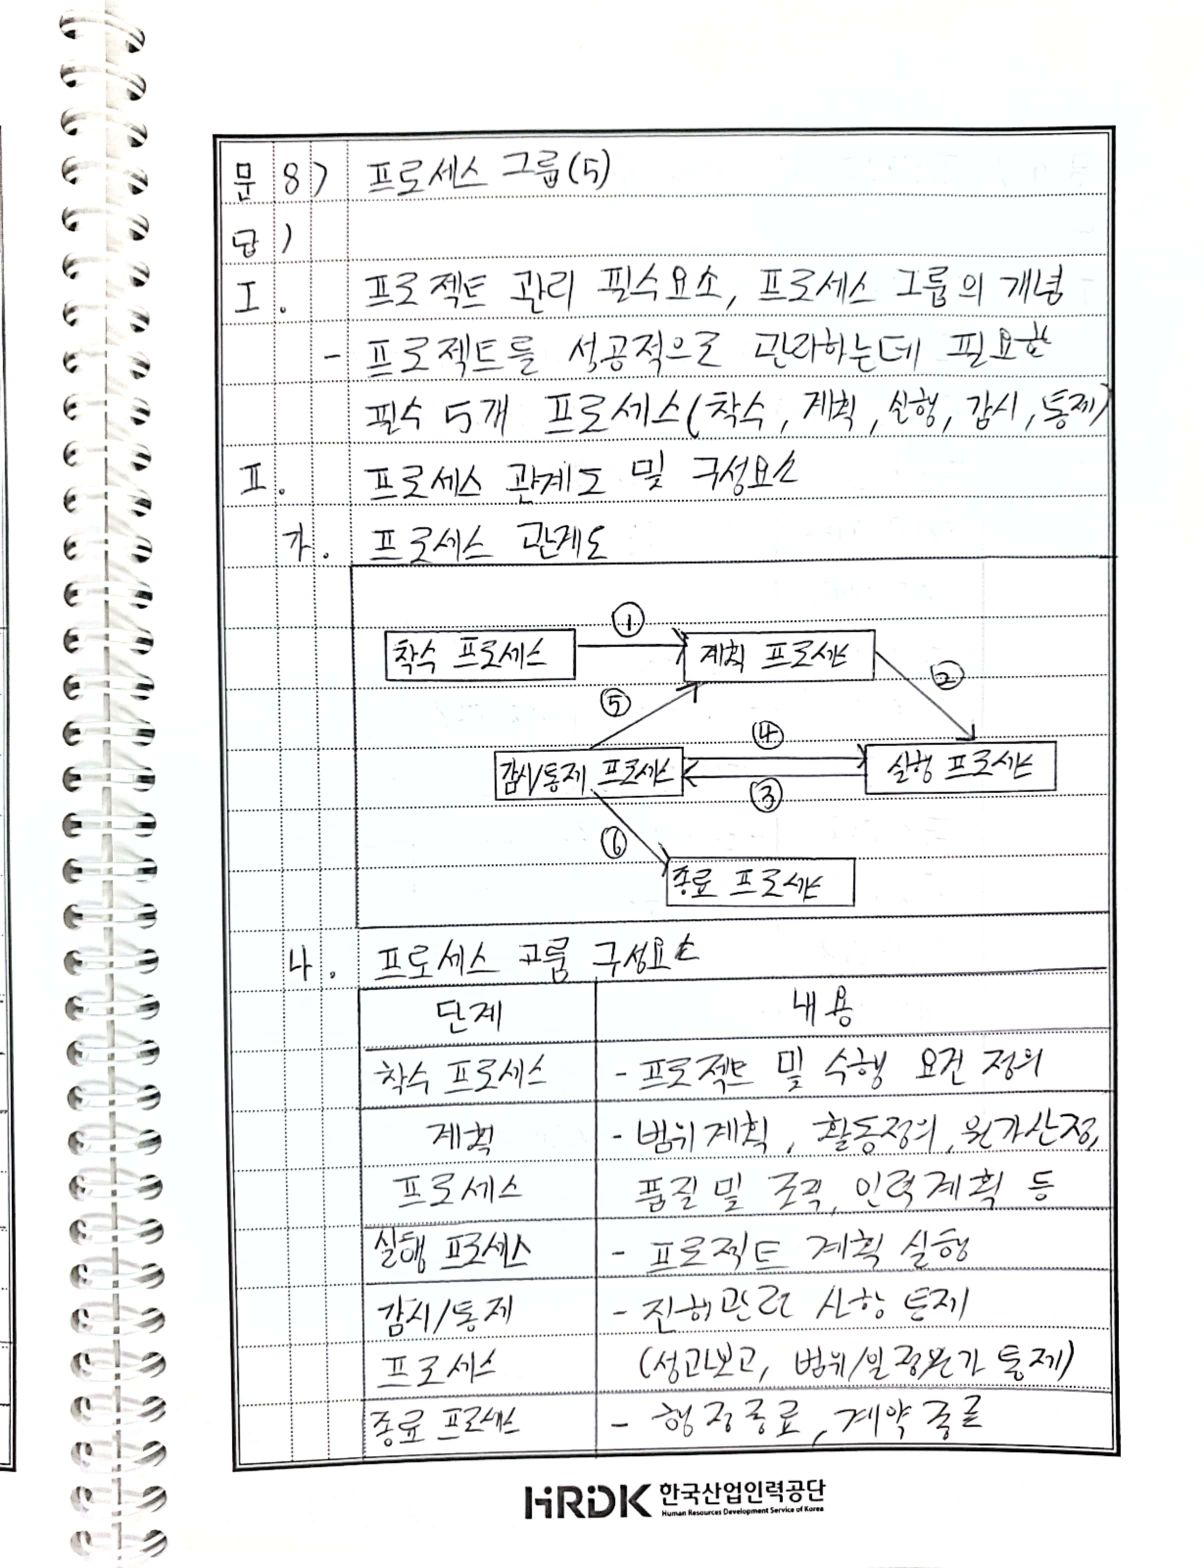 문 8) 프로세스 그룹(5)
답)
I. 프로젝트 관리 필수요소, 프로세스 그룹의 개념
- 프로젝트를 성공적으로 관리하는데 필요한
필수 5개 프로세스(착수, 계획, 실행, 감시, 통제)
II. 프로세스 관계도 및 구성요소
가. 프로세스 관계도
①
착수 프로세스 계획 프로세스
②
⑤
④
감시/통제 프로세스 실행 프로세스
③
⑥
종료 프로세스
나. 프로세스 그룹 구성요소
단계 내용
착수 프로세스 - 프로젝트 및 수행 요건 정의
계획 - 범위계획, 활동정의, 원가산정,
프로세스 품질 및 조직, 인력계획 등
실행 프로세스 - 프로젝트 계획 실행
감시/통제 - 진행관리 사항 통제
프로세스 (성과보고, 범위/일정원가 통제)
종료 프로세스 - 행정종료, 계약종료
HRDK 한국산업인력공단
Human Resources Development Service of Korea